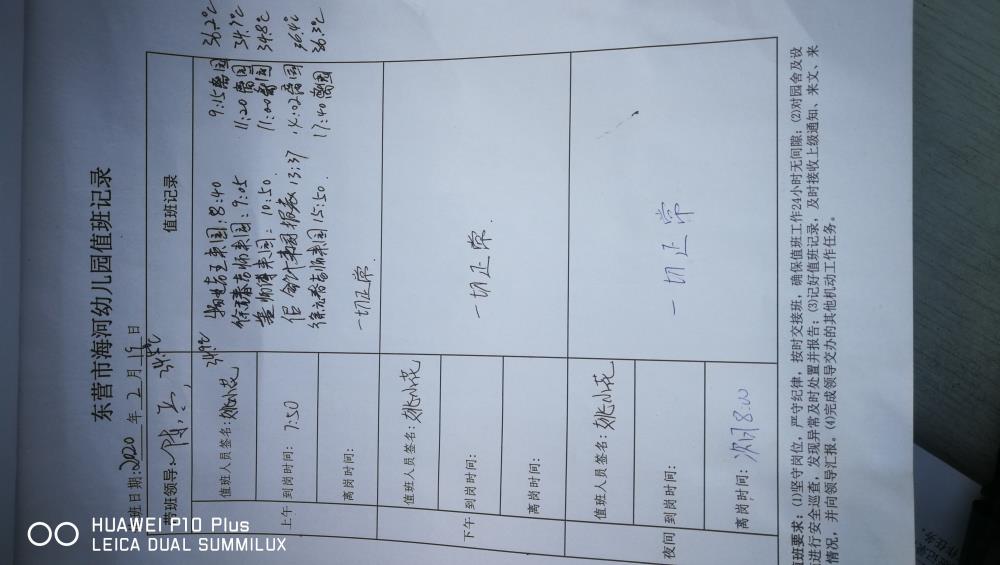 东营市海河幼儿园值班记录
班日期:2020年2月15日
带班领导:
值班记录
上午
值班人员签名:姚小花
到岗时间: 7:50
离岗时间:
来园: 8:40 9:15离园 36.2℃
老师来园: 9:05 11:20离园 34.7℃
师傅来园: 10:50 11:00离园 34.8℃
会计来园报表13:37 14:02离园 36.4℃
老师来园15:50 17:40离园 36.3℃
一切正常.
下午
值班人员签名:姚小花
到岗时间:
离岗时间:
一切正常.
夜间
值班人员签名:姚小花
到岗时间:
离岗时间: 次日8:00
一切正常
班要求:(1)坚守岗位,严守纪律,按时交接班,确保值班工作24小时无间隙;(2)对园舍及设
进行安全巡查,发现异常及时处置并报告;(3)记好值班记录,及时接收上级通知、来文、来
情况,并向领导汇报。(4)完成领导交办的其他机动工作任务。
HUAWEI P10 Plus
LEICA DUAL SUMMILUX